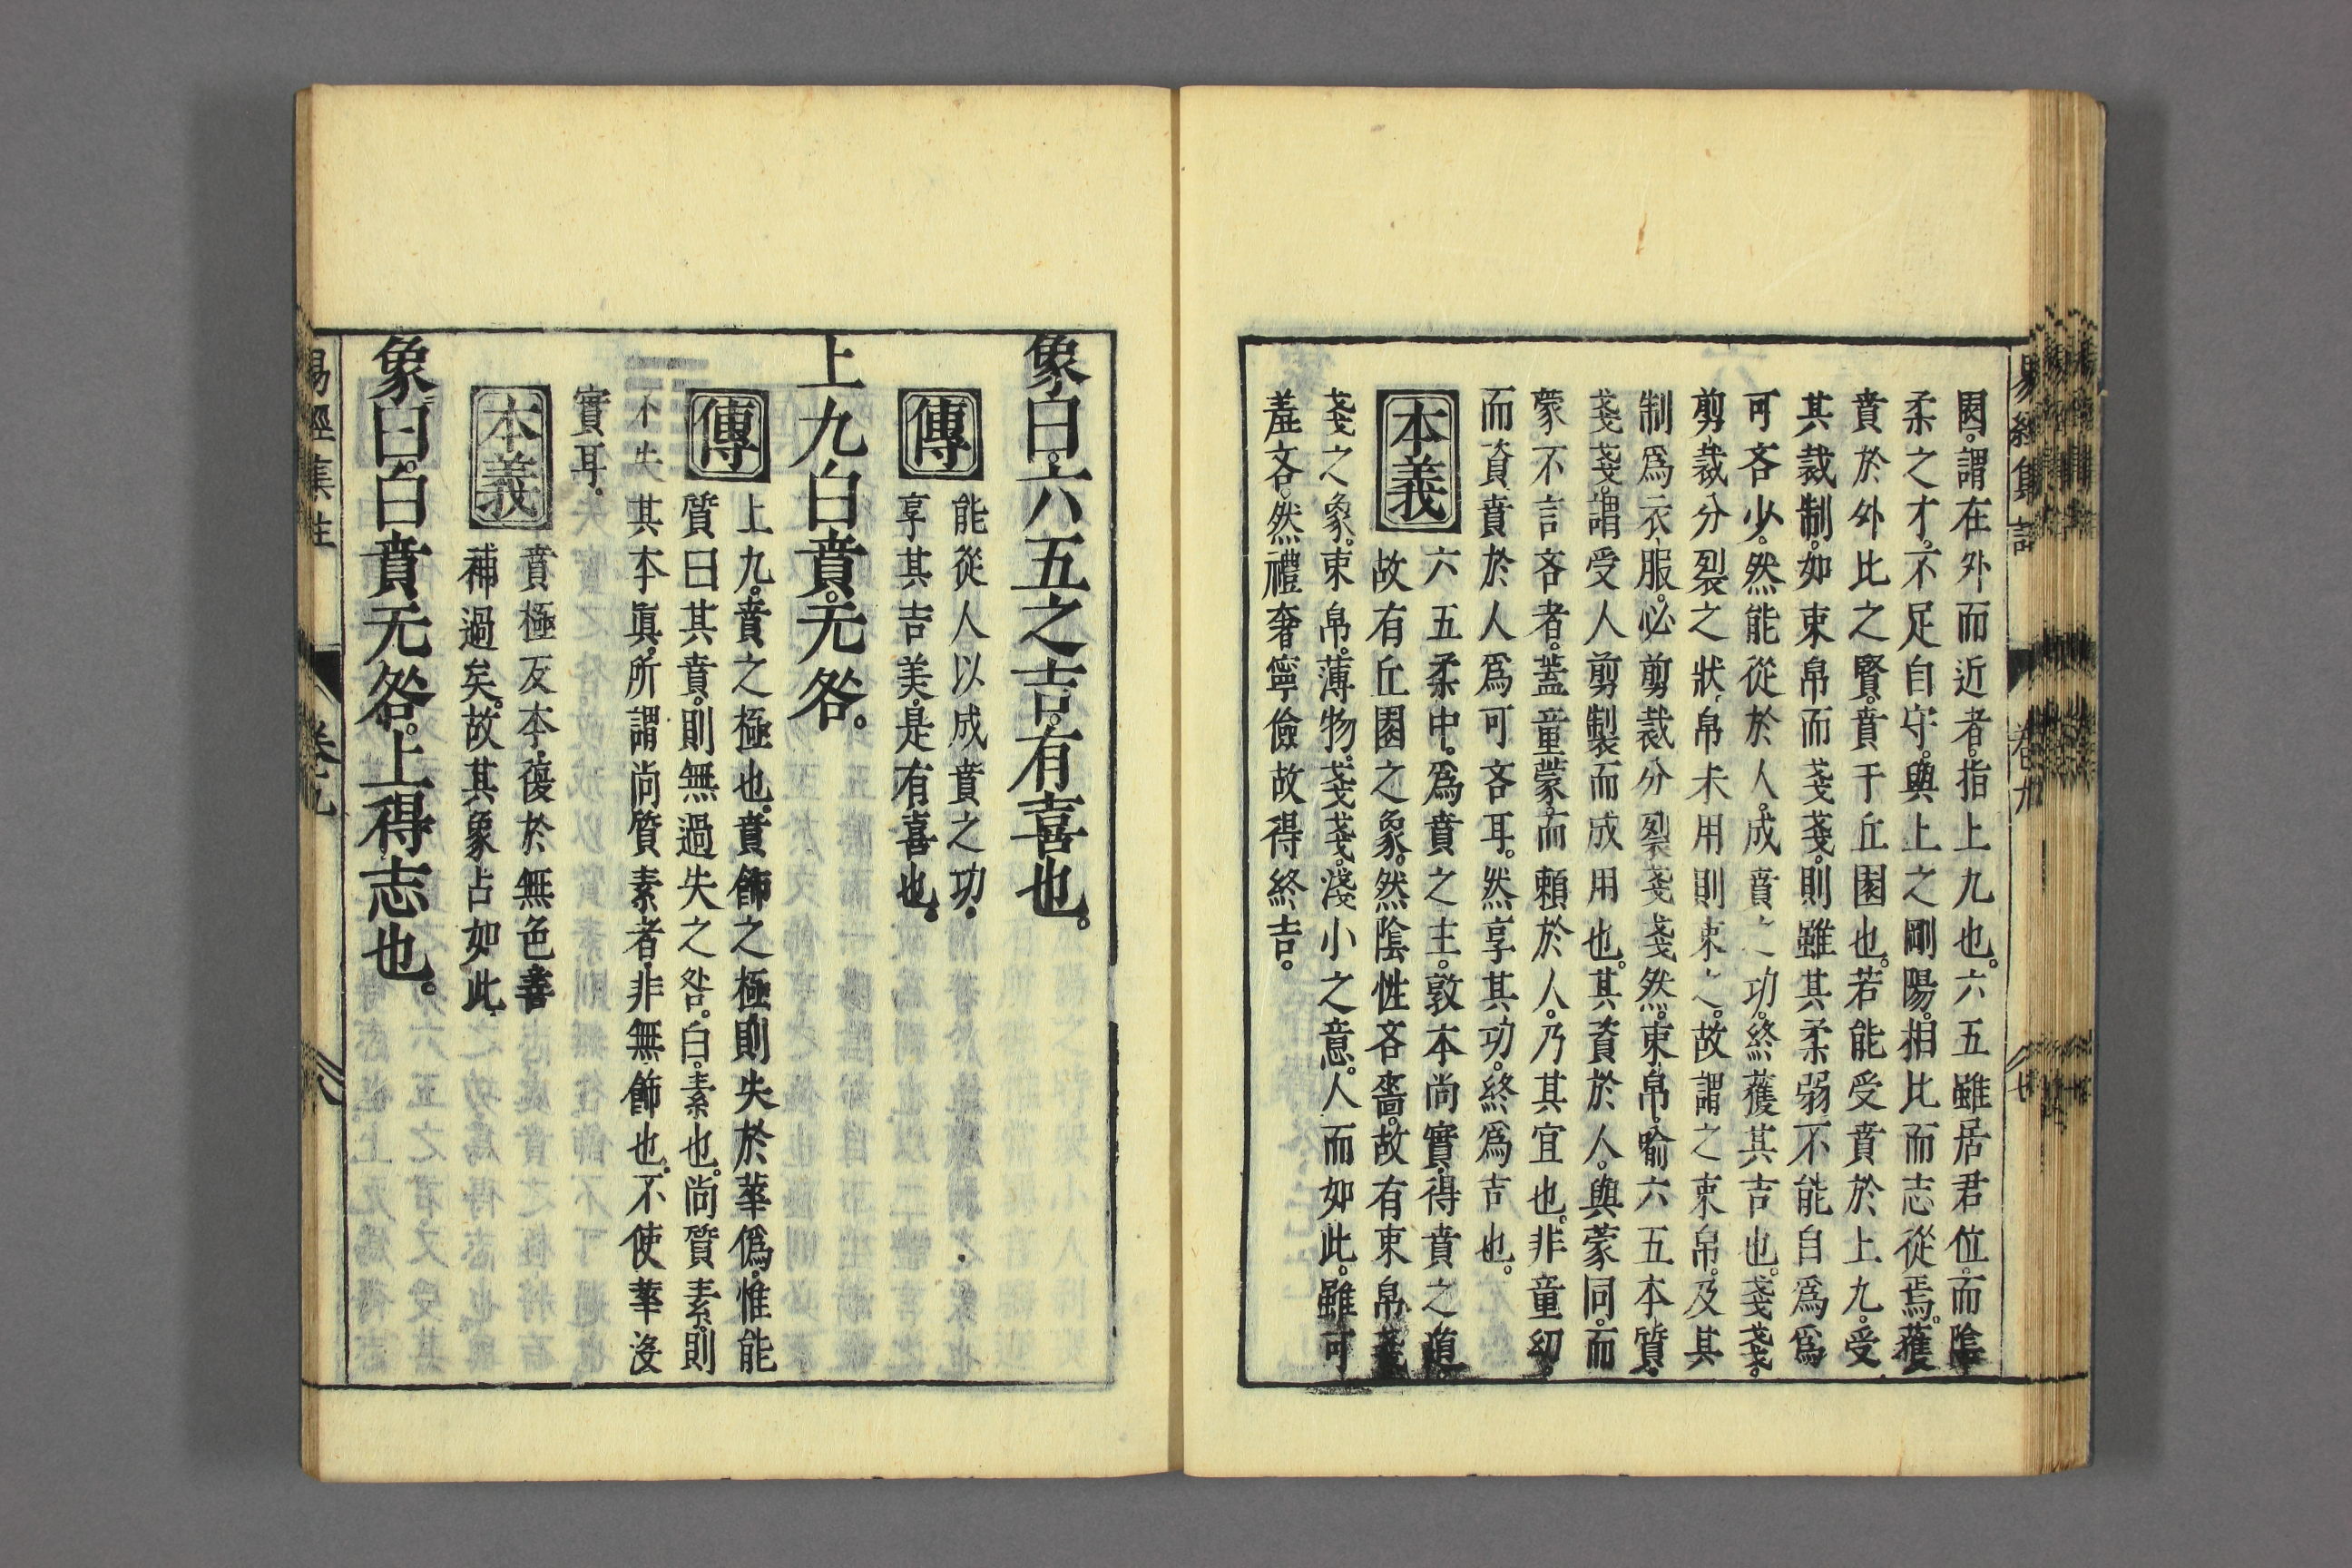 因。謂在外而近者。指上九也。六五雖居君位。而陰
柔之才。不足自守。與上之剛陽。相比而志從焉。獲
賁於外比之賢。賁于丘園也。若能受賁於上九。受
其裁制。如束帛而戔戔。則雖其柔弱不能自爲爲
可吝少。然能從於人。成賁之功。終獲其吉也。戔戔。
剪裁分裂之狀。帛未用則束之。故謂之束帛。及其
制爲衣服。必剪裁分裂戔戔然。束帛。喻六五本質。
戔戔。謂受人剪製而成用也。其資於人。與蒙同。而
蒙不言吝者。蓋童蒙。而賴於人。乃其宜也。非童幼。
而資賁於人爲可吝耳。然享其功。終爲吉也。
本義
六五柔中。爲賁之主。敦本尚實。得賁之道。
故有丘園之象。然陰性吝嗇。故有束帛戔
戔之象。束帛。薄物。戔戔。淺小之意。人而如此。雖可
羞吝。然禮奢寧儉故得終吉。
易經集註 卷九
象曰。六五之吉。有喜也。
傳
能從人以成賁之功。
享其吉美。是有喜也。
上九白賁。无咎。
傳
上九。賁之極也。賁飾之極則失於華僞。惟能
質曰其賁。則無過失之咎。白。素也。尚質素。則
不失其本眞。所謂尚質素者。非無飾也。不使華沒
實耳。
本義
賁極反本。復於無色善
補過矣。故其象占如此。
象曰。白賁无咎。上得志也。
易經集註 卷九 八